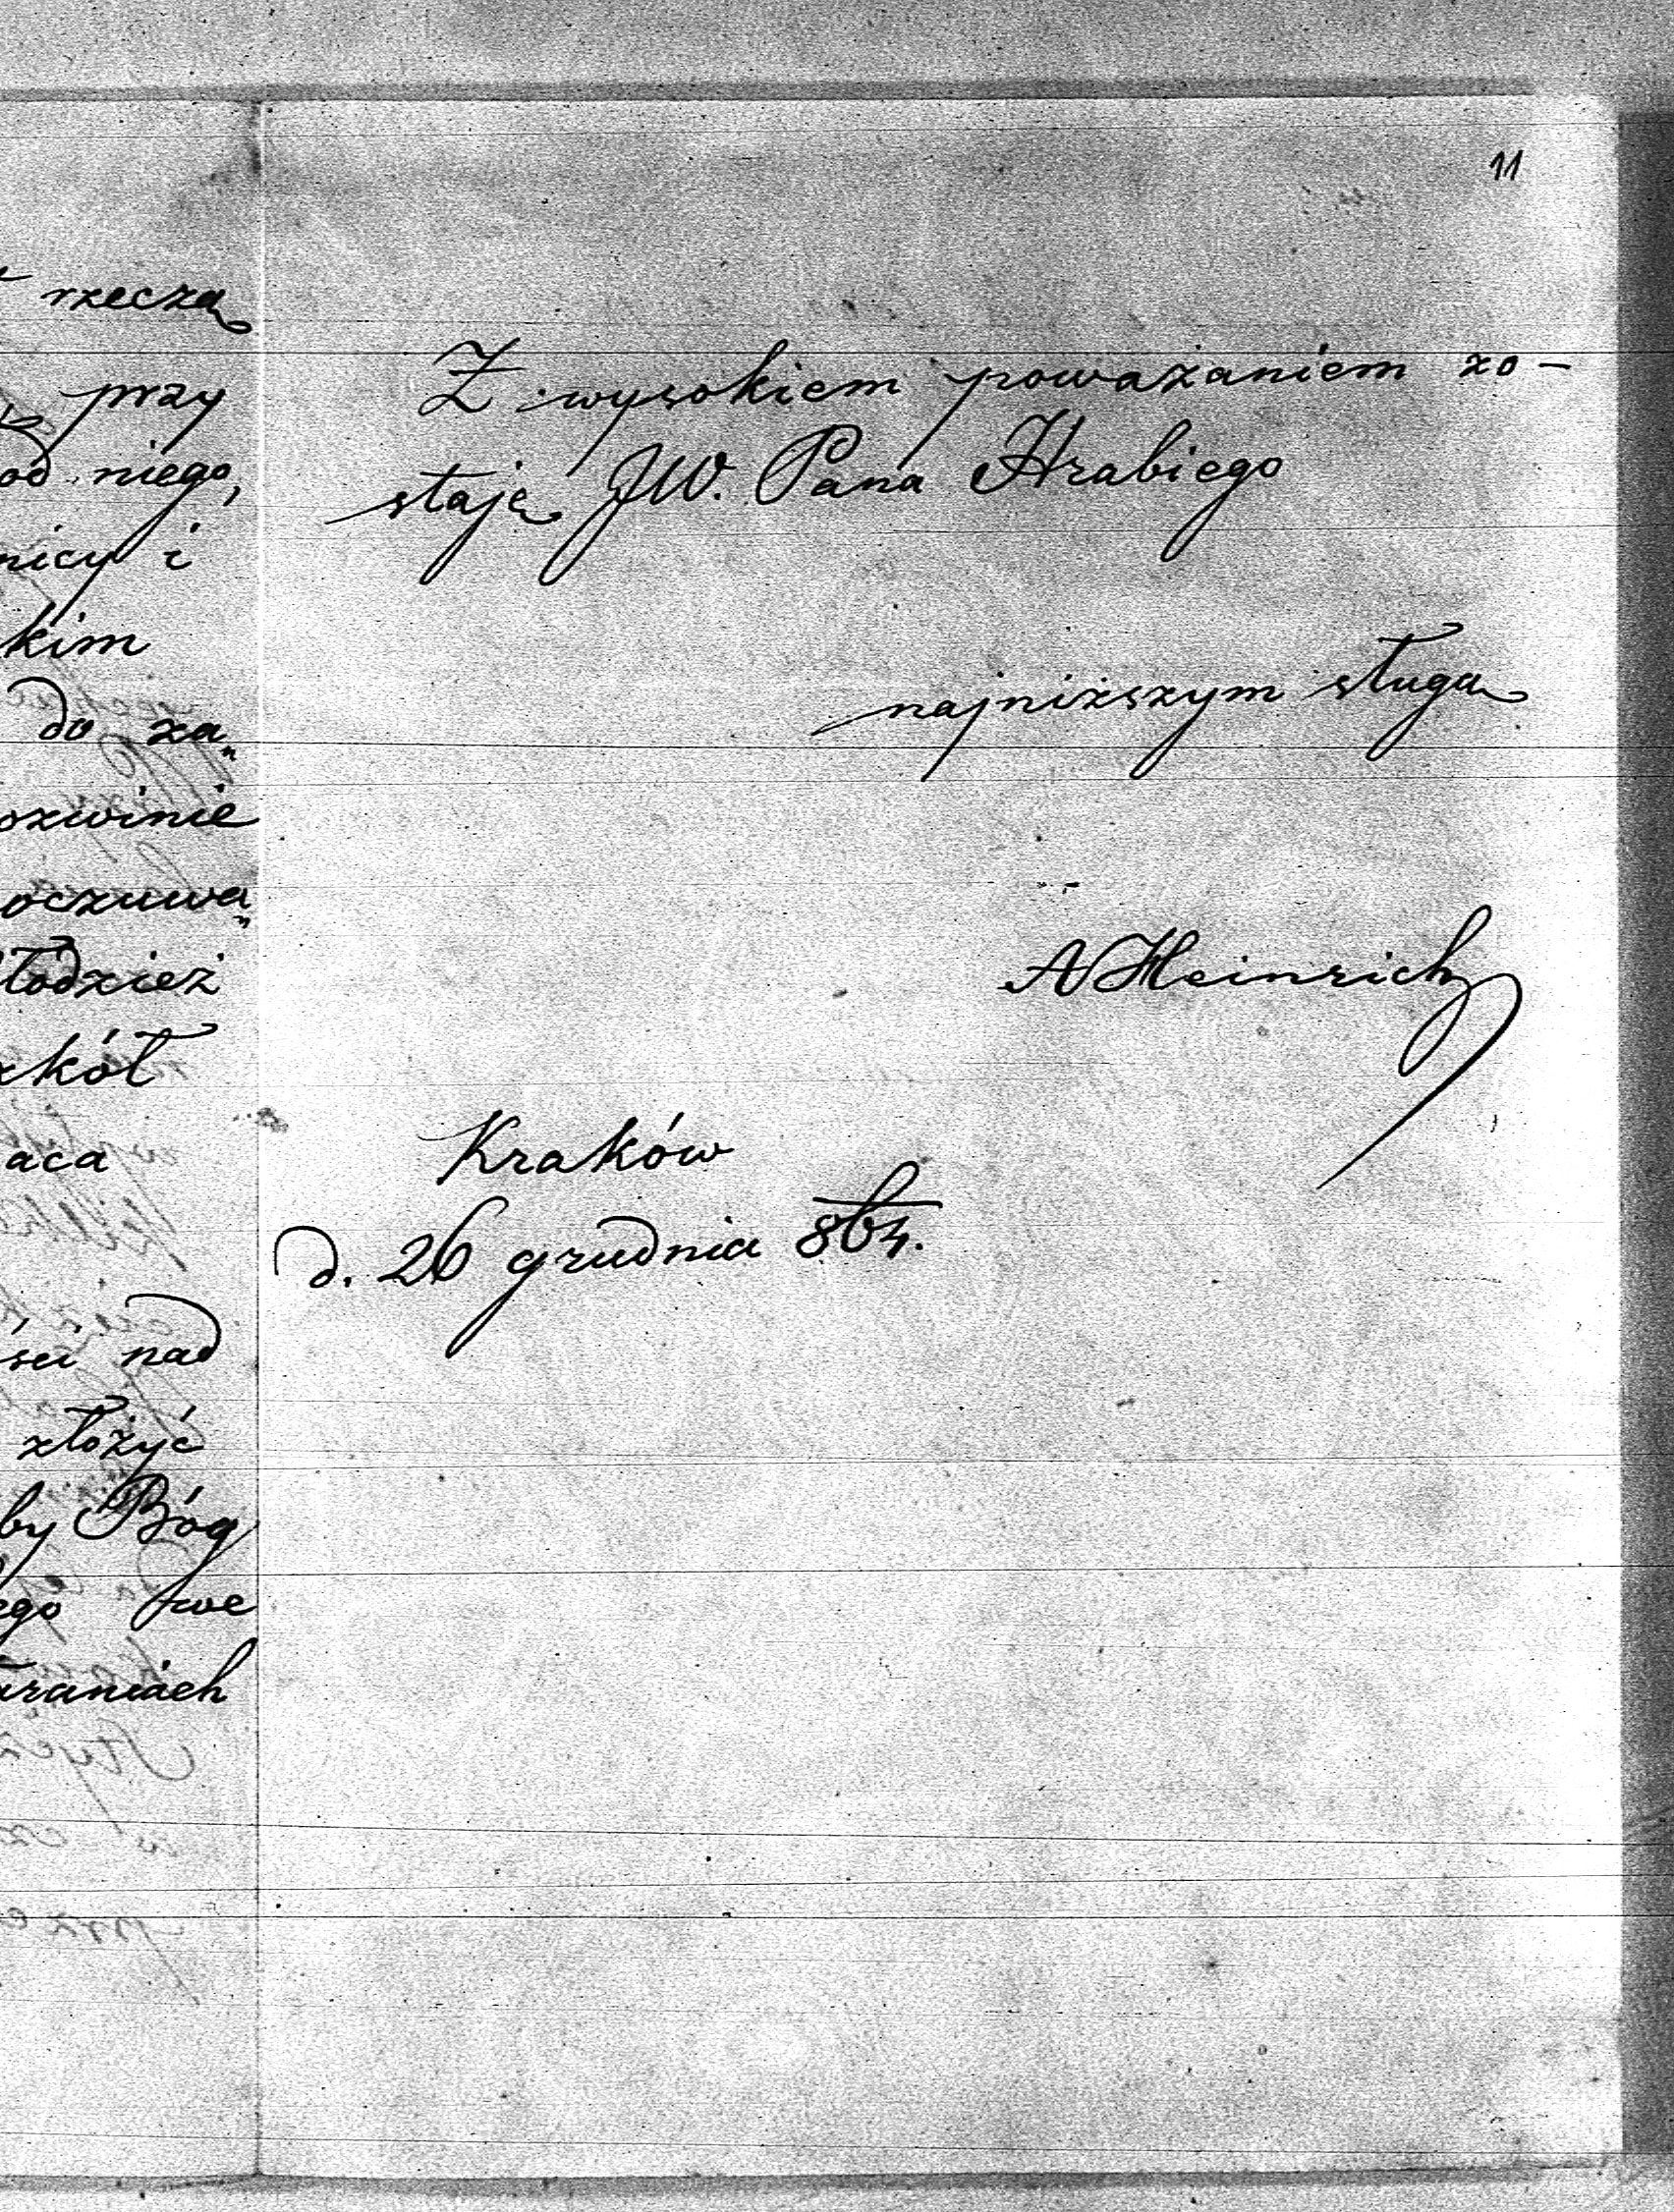 rzeczą
przy
od niego,
nicy i
kim
do za„
ozwinie
oczuwa„
łodzież
zkół
aca
ści nad
złożyć
by Bóg
ego we
araniach
11
Z wysokiem poważaniem zo-
staję JW. Pana Hrabiego
najniższym sługą
A Heinrich
Kraków
d. 26 grudnia 864.